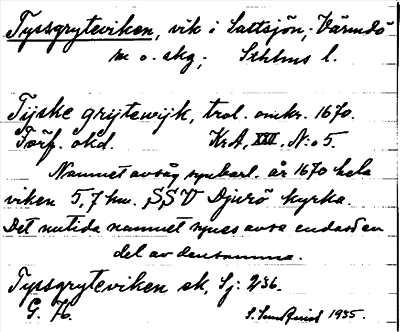 Tyssgryteviken, vik i Saltsjön, Värmdö
m o. skg, Sthlms l.
Tijske grijtewijk, trol. omkr. 1670.
Förf. okd. KrA, XXVI. N:o 5.
Namnet avsåg synbarl. år 1670 hela
viken 5,7 km. SSV Djurö kyrka.
Det nutida namnet synes avse endast en
del av densamma.
Tyssgryteviken ek, Sj: 236.
G. 76. 1935.